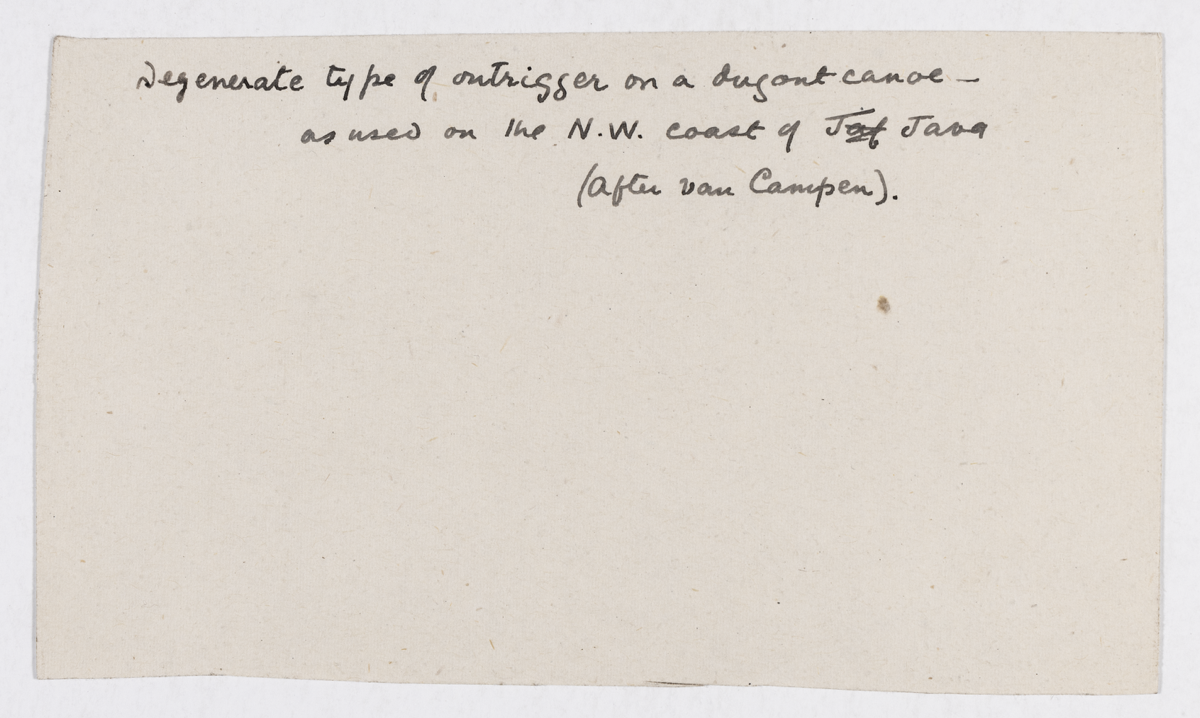 Degenerate type of outrigger on a dugout canoe —
as used on the N.W. coast of Java
(After van Campen).